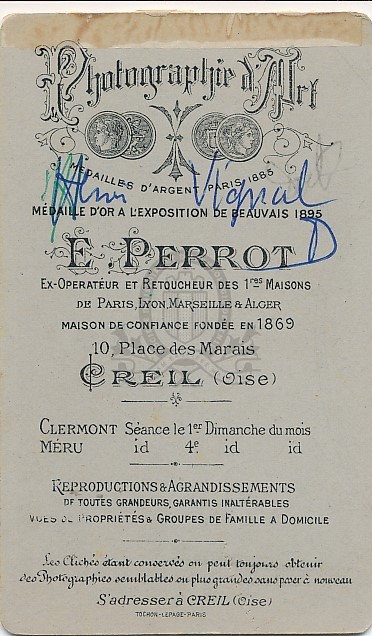 Photographie d'Art
MÉDAILLES D'ARGENT PARIS 1885
Henri Vignal
MÉDAILLE D'OR A L'EXPOSITION DE BEAUVAIS 1895
E. PERROT
EX-OPERATEUR ET RETOUCHEUR DES 1res MAISONS
DE PARIS, LYON, MARSEILLE & ALGER
MAISON DE CONFIANCE FONDÉE EN 1869
10, Place des Marais
CREIL (Oise)
CLERMONT Séance le 1er Dimanche du mois
MÉRU id 4e id id
REPRODUCTIONS & AGRANDISSEMENTS
DE TOUTES GRANDEURS, GARANTIS INALTÉRABLES
VUES DE PROPRIÉTÉS & GROUPES DE FAMILLE A DOMICILE
Les Clichés étant conservés on peut toujours obtenir
des Photographies semblables ou plus grandes sans poser à nouveau
S'adresser à CREIL (Oise)
TOCHON-LEPAGE-PARIS